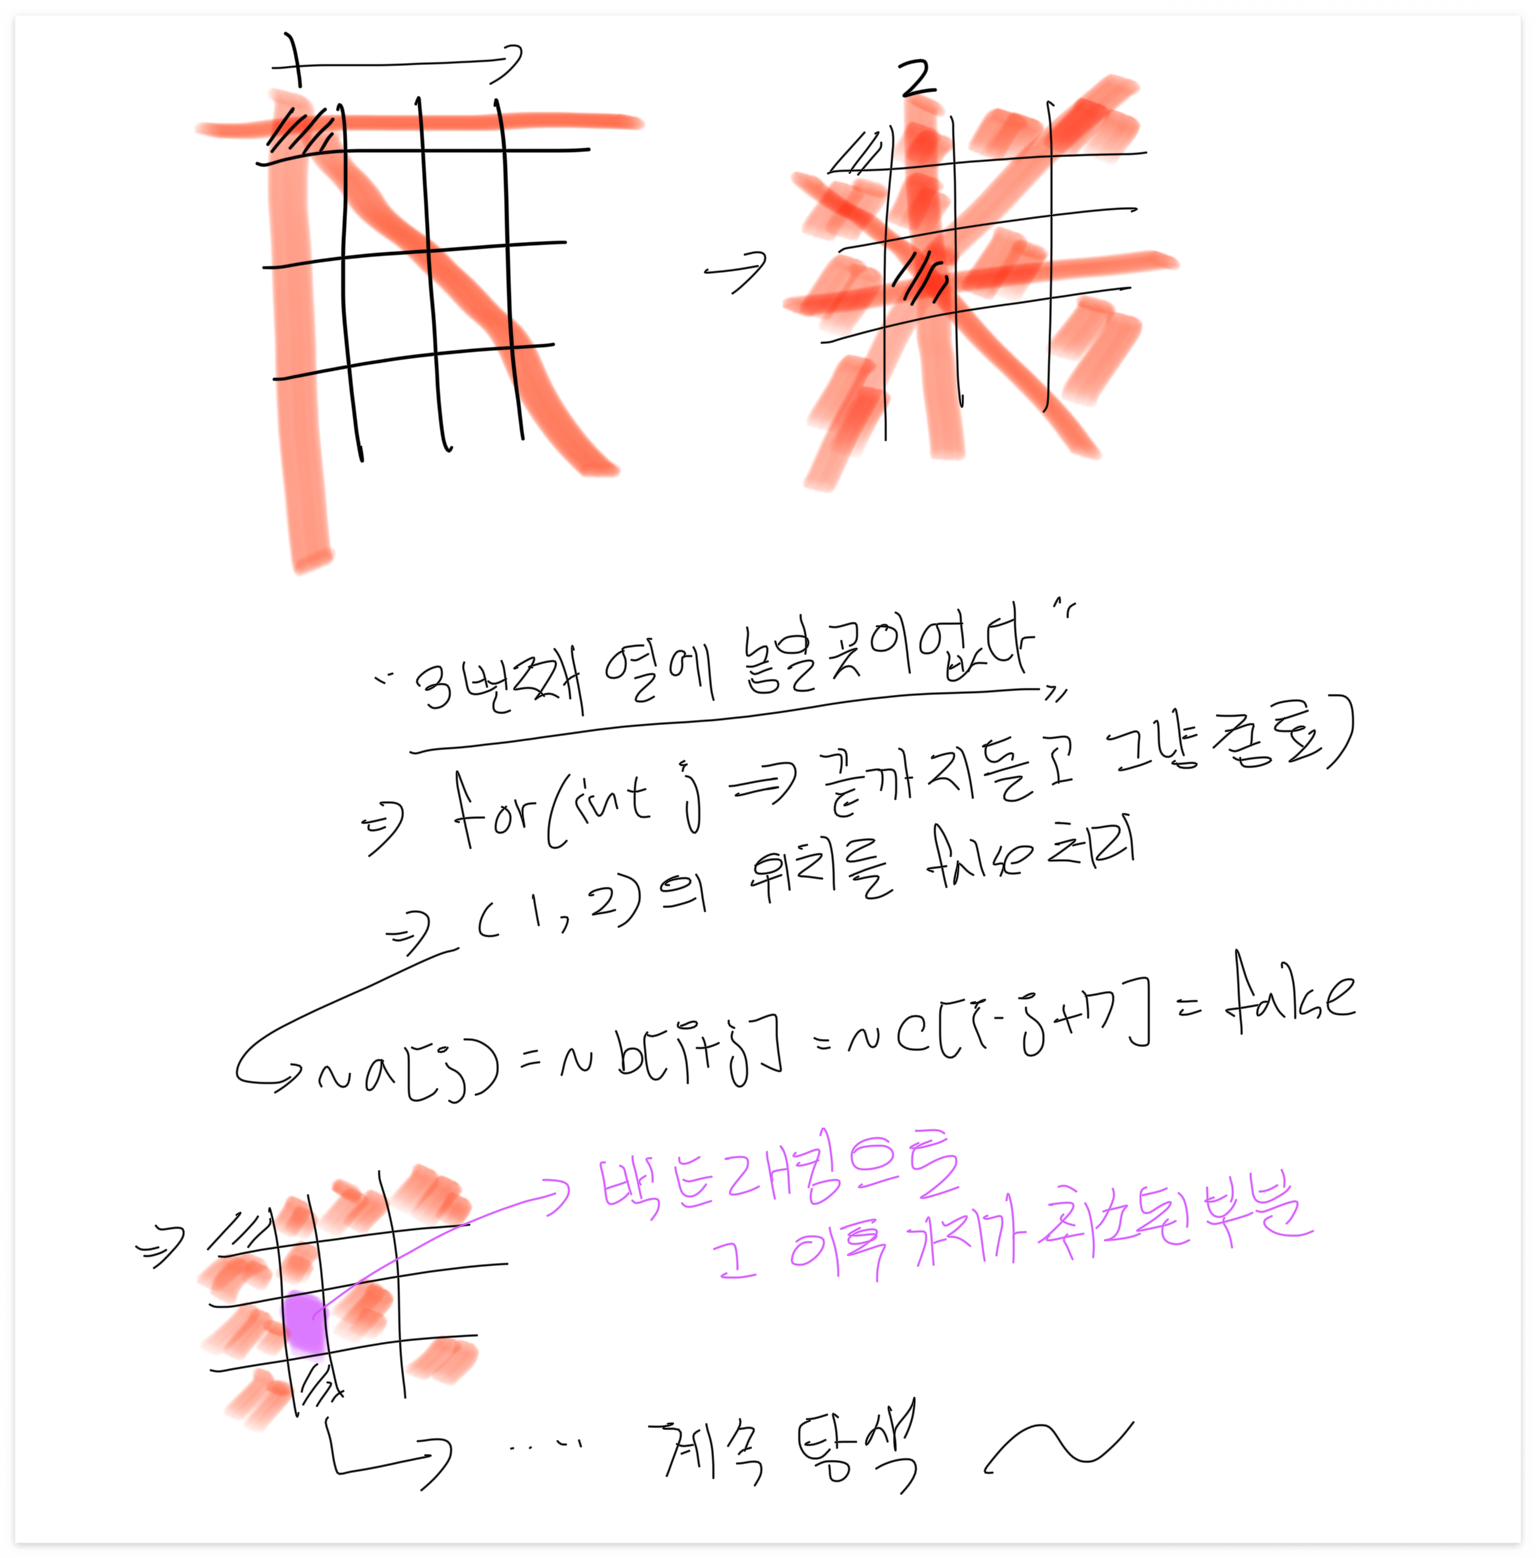 1 → 2
→
"3번째 열에 놓일곳이없다"
⇒ for(int j ⇒ 끝까지돌고 그냥 종료)
⇒ (1,2)의 위치를 false처리
~a[j] = ~b[i+j] = ~c[i-j+7] = false
⇒ → 백트래킹으로
그 이후 가지가 취소된부분
→ ..... 계속 탐색 ~